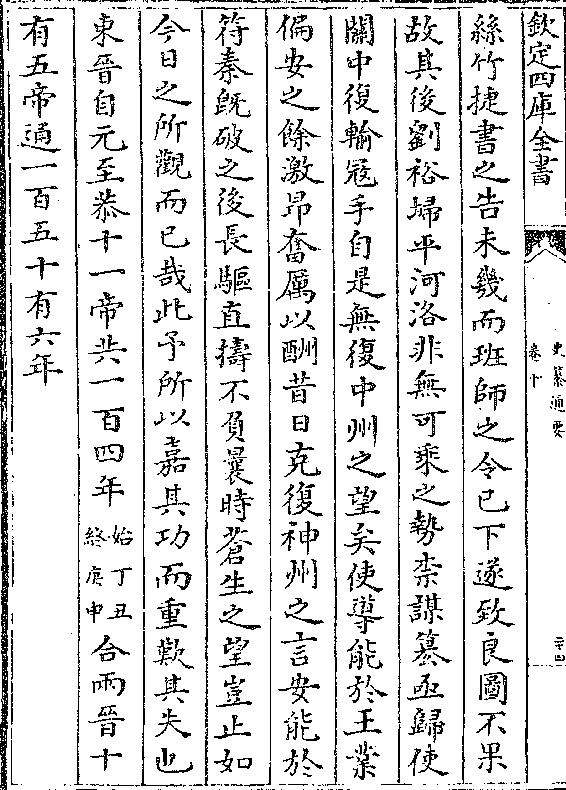 欽定四庫全書
史纂通要
卷十
二十四
絲竹捷書之告未幾而班師之令已下遂致良圖不果
故其後劉裕埽平河洛非無可乗之勢柰謀簒亟歸使
闗中復輸冦手自是無復中州之望矣使導能於王業
偏安之餘激昻奮厲以酬昔日克復神州之言安能於
符秦既破之後長驅直擣不負曩時蒼生之望豈止如
今日之所觀而已哉此予所以嘉其功而重歎其失也
東晉自元至恭十一帝共一百四年始丁丑終庚申合兩晉十
有五帝通一百五十有六年